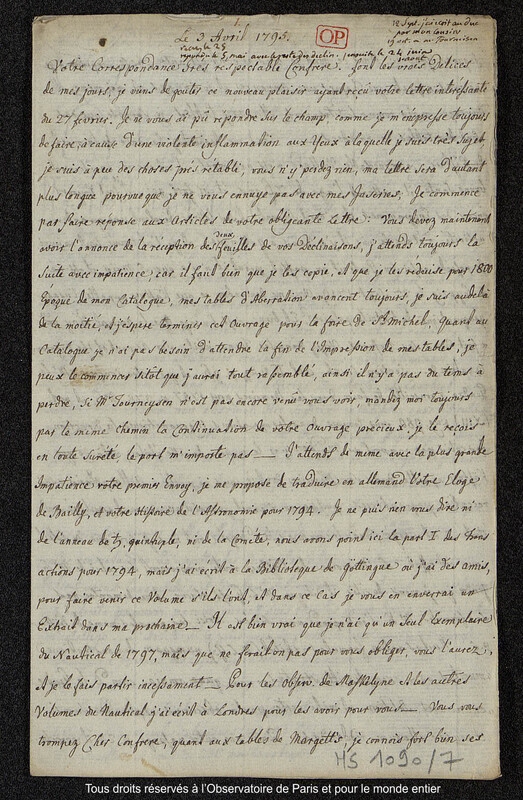 1
Le 3 Avril 1795.
OP
12 Sept. j'ai écrit au duc
par mon cousin
recu le 25
repondu le 5 mai
Votre Correspondance très respectable Confrere. font les vrais Delices
de mes jours, je viens de gouter ce nouveau plaisir aiant recu votre lettre intéressante
du 27 fevrier. Je ne vous ai pû repondre sur le champ, comme je m'empresse toujours
de faire, à cause d'une violente inflammation aux Yeux à laquelle je suis très sujet
je suis à peu des choses prés retabli, vous n'y perdez rien, ma lettre sera d'autant
plus longue pourvu que je ne vous ennuye pas avec mes Juseries, Je commence
par faire reponse aux Articles de votre obligeante Lettre: Vous devez maintenant
avoir l'annonce de la reception des deux feuilles de vos Declinaisons, j'attends toujours la
suite avec impatience, car il faut bien que je les copie, & que je les reduise pour 1800
Epoque de mon Catalogue, mes tables d'Aberration avancent toujours, je suis audelà
de la moitié, et j'éspere terminer cet Ouvrage pour la foire de St. Michel, quand au
Catalogue je n'ai pas besoin d'attendre la fin de l'Impression de mes tables, je
peux le commencer sitôt que j'aurai tout rassemblé, ainsi il n'y a pas du tems à
perdre, Si Mr Tourneysen n'est pas encore venu vous voir, mandez moi toujours
par le même chemin la Continuation de votre Ouvrage précieux, je le recois
en toute sureté, le port m'importe pas — J'attends de meme avec la plus grande
Impatience votre premier Envoy, je me propose de traduire en allemand Votre Eloge
de Bailly, et votre Histoire de l'Astronomie pour 1794. Je ne puis rien vous dire ni
de l'anneau de ♄ quintuple, ni de la Comète, nous avons point ici la part I des Trans
actions pour 1794, mais j'ai écrit à la Biblioteque de Göttingue où j'ai des amis,
pour faire venir ce Volume s'ils l'ont, & dans ce cas je vous en enverrai un
Extrait dans ma prochaine — Il est bien vrai que je n'ai qu'un seul Exemplaire
du Nautical de 1797, mais que ne ferait on pas pour vous obliger, vous l'aurez,
& je le fais partir incessament — Pour les Observ. de Maskelyne & les autres
Volumes du Nautical j'ai écrit à Londres pour les avoir pour vous — Vous vous
trompez Cher Confrere, quant aux tables de Margetts, je connois fort bien ses
MS 1090/7
Tous droits réservés à l'Observatoire de Paris et pour le monde entier